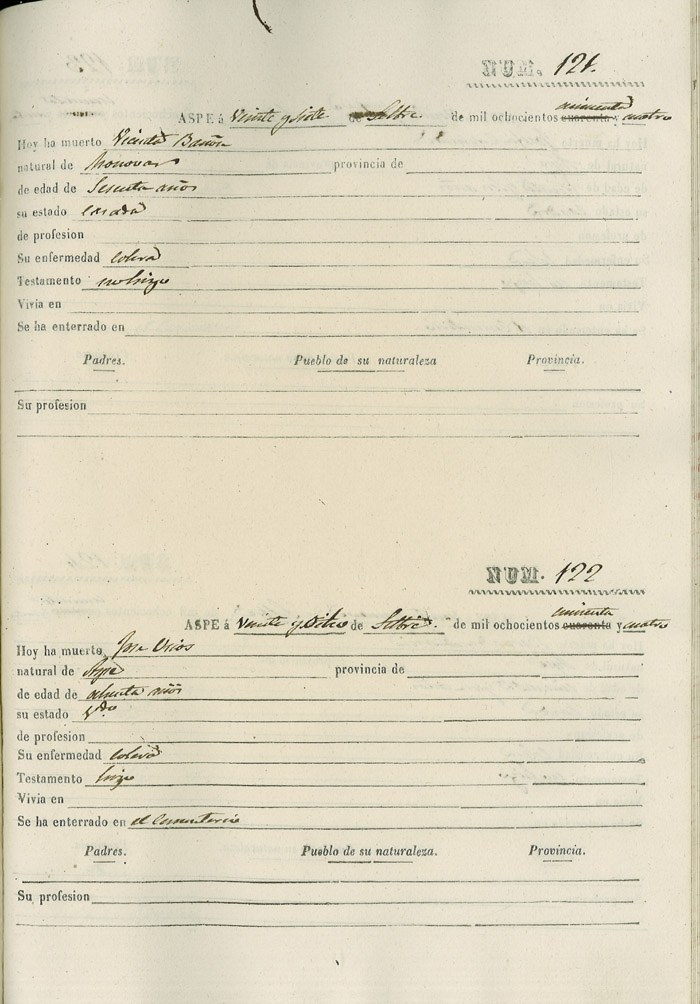 NUM. 121.
ASPE á Veinte y Siete de Setbre. de mil ochocientos cincuenta cuarenta y cuatro
Hoy ha muerto Vicenta
natural de Monovar provincia de
de edad de Sesenta años
su estado casada
de profesion
Su enfermedad colera
Testamento no hizo
Vivia en
Se ha enterrado en
Padres. Pueblo de su naturaleza Provincia.
Su profesion
NUM. 122
ASPE á Veinte y Ocho de Setbre. de mil ochocientos cincuenta cuarenta y cuatro
Hoy ha muerto
natural de Aspe provincia de
de edad de ochenta años
su estado Vdo
de profesion
Su enfermedad colera
Testamento hizo
Vivia en
Se ha enterrado en el Cementerio
Padres. Pueblo de su naturaleza. Provincia.
Su profesion